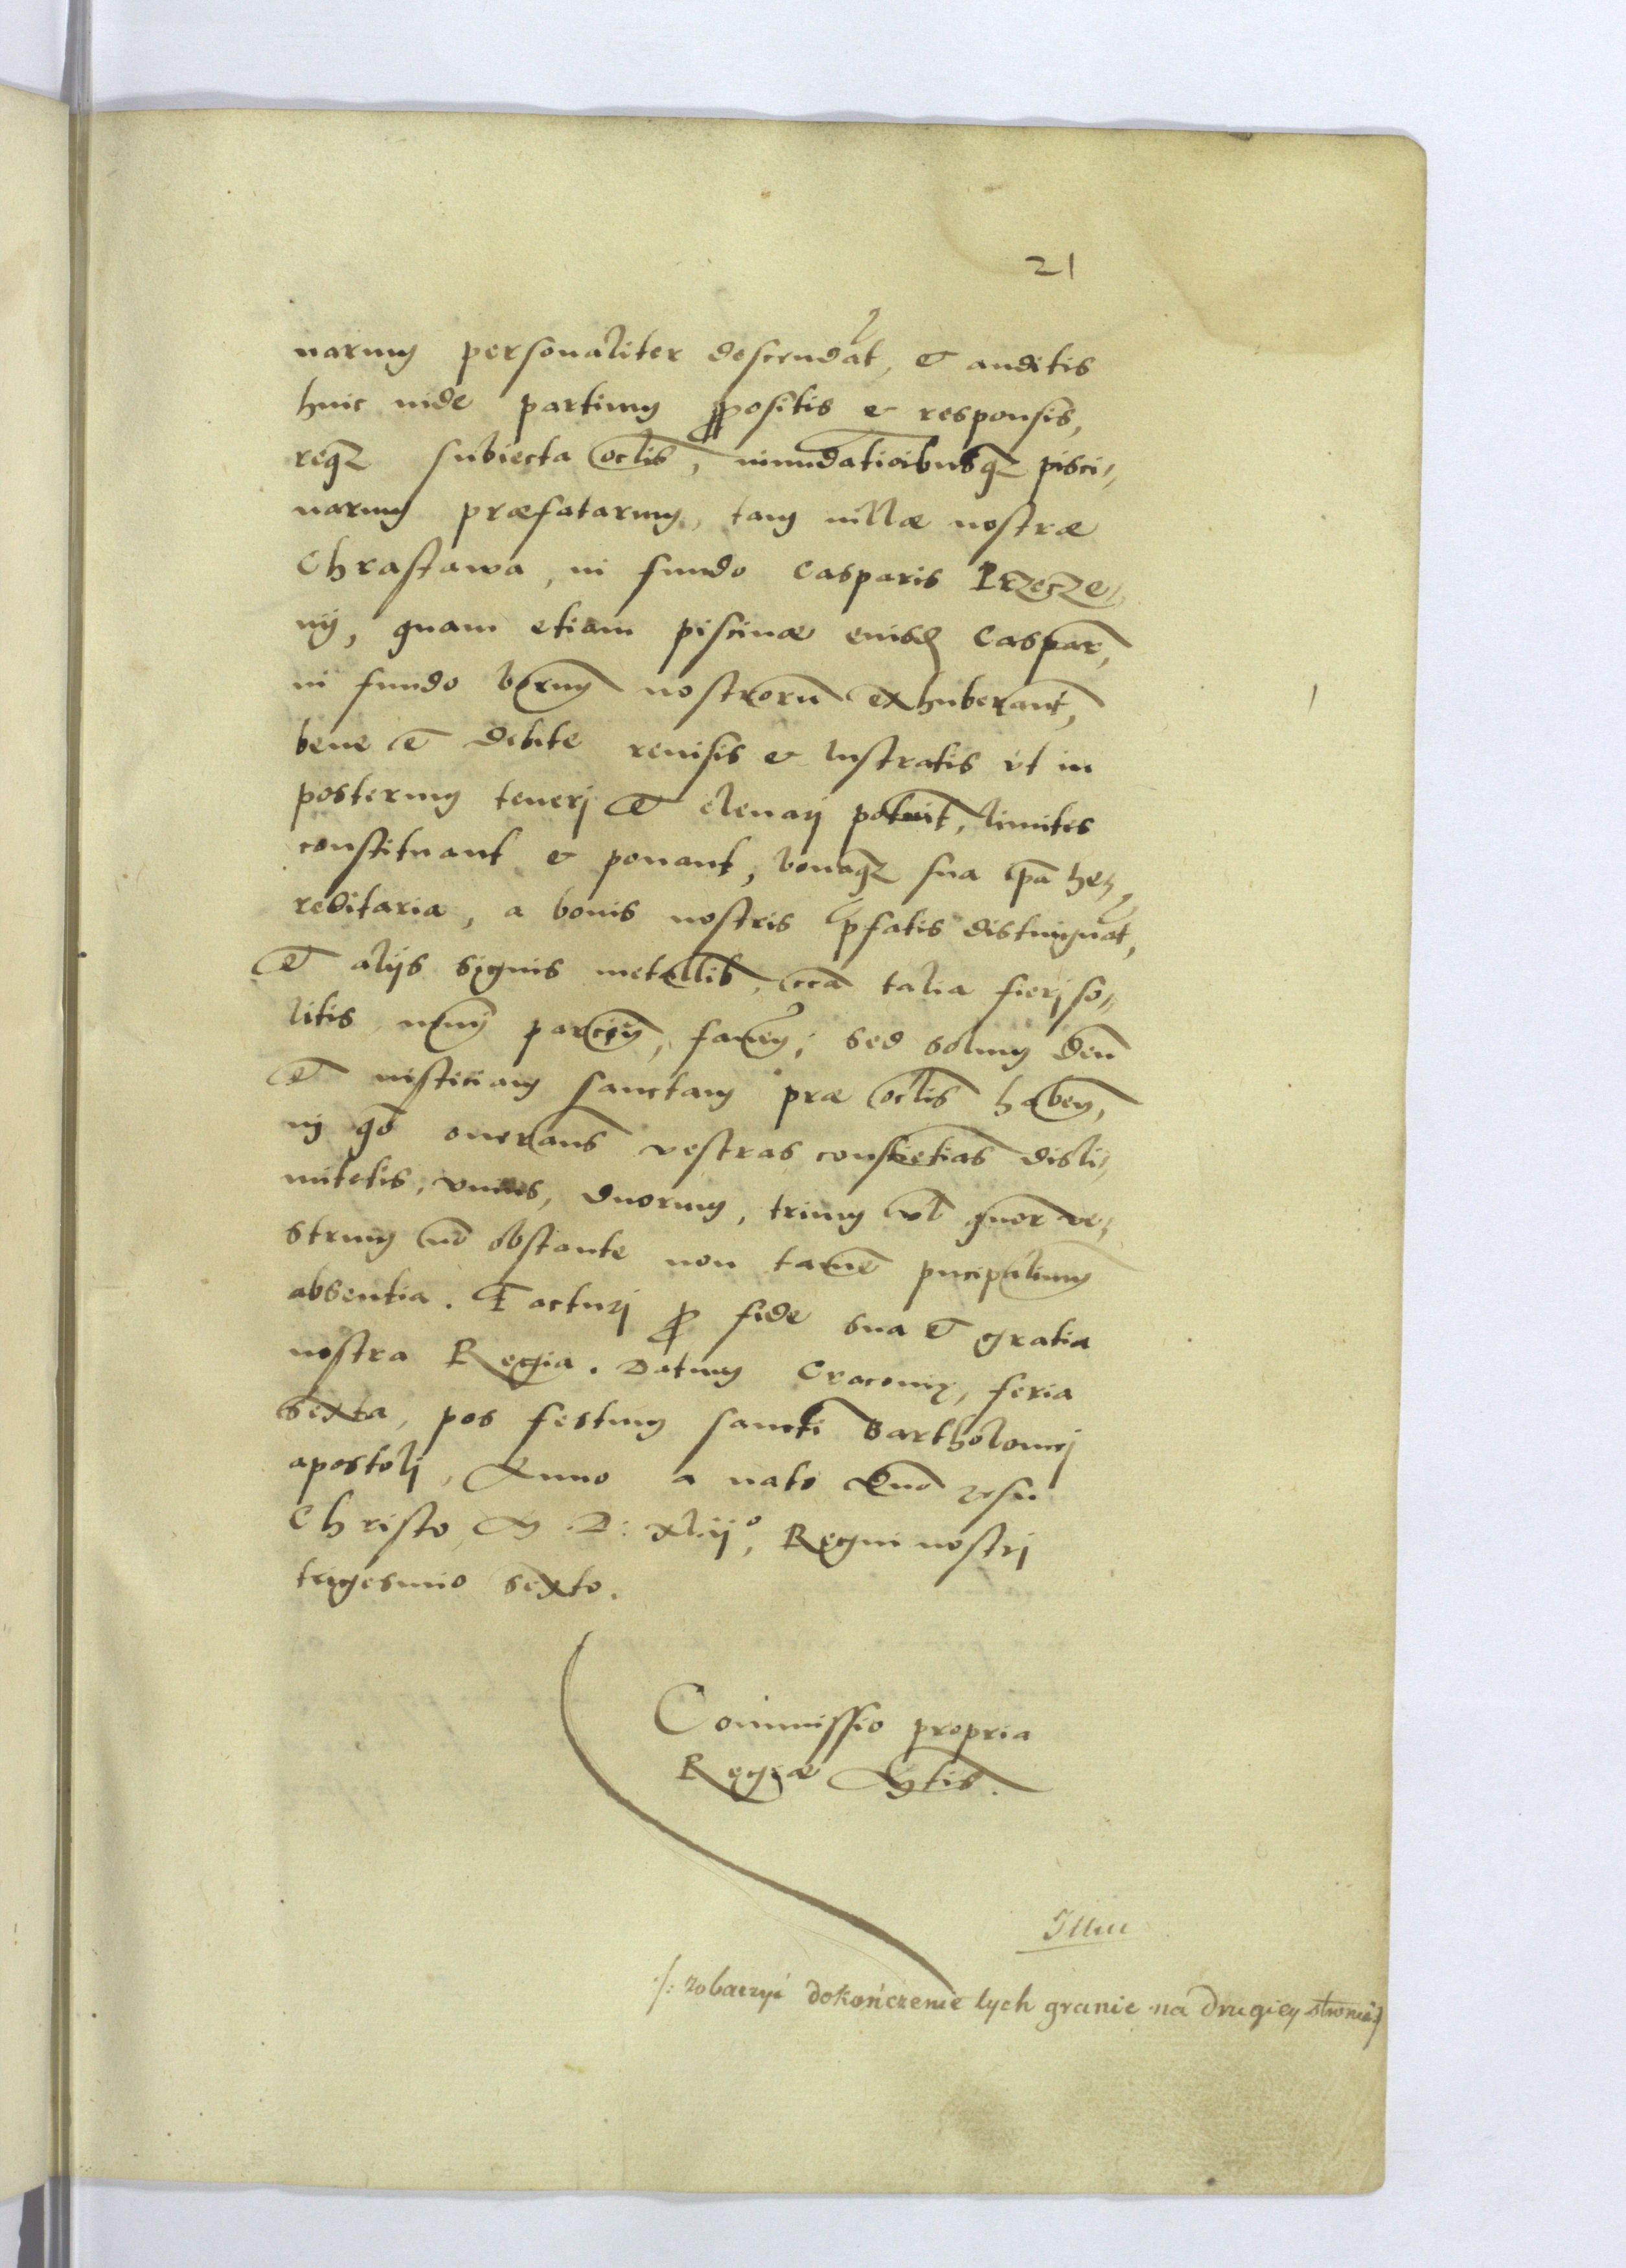 21
narum personaliter descendat, et auditis
huic inde partium propositis et responsis,
reqz subiecta oclis, inundatioibusqz pisci,,
narum præfatarum, tam villæ nostræ
Chrastawa, in fundo Casparis Przecze,,
nij, quam etiam piscinæ eiusd Caspar,
in fundo borum nostroru exhuberant,
bene et debite reuisis et lustratis vt in
posterum tenerj et eleuarj poterit, limites
constituant et ponant, bonaqz sua ipa he,,
reditaria, a bonis nostris pfatis distinguat,
et alijs signis metallib, cca talia fierj so,,
litis, nemj parcim, fauen; sed solum Deu
et iustitiam sanctam præ oclis haben,
in quo onerans vestras conscietias disli,,
mitetis, vnius, duorum, trium vl quor ve,,
strum no obstante non tame pncipalium
absentia. Facturj pro fide sua et gratia
nostra Regia. Datum Cracouię, feria
sexta, pos festum sancti Bartholomej
apostolj, Anno a nato Dno Jesu
Christo, M.D: xl.ij°, Regni nostrj
trigesimo sexto.
Commissio propria
Regiæ Mtis.
/: zobaczyć dokończenie tych granic na drugiey stronie :/